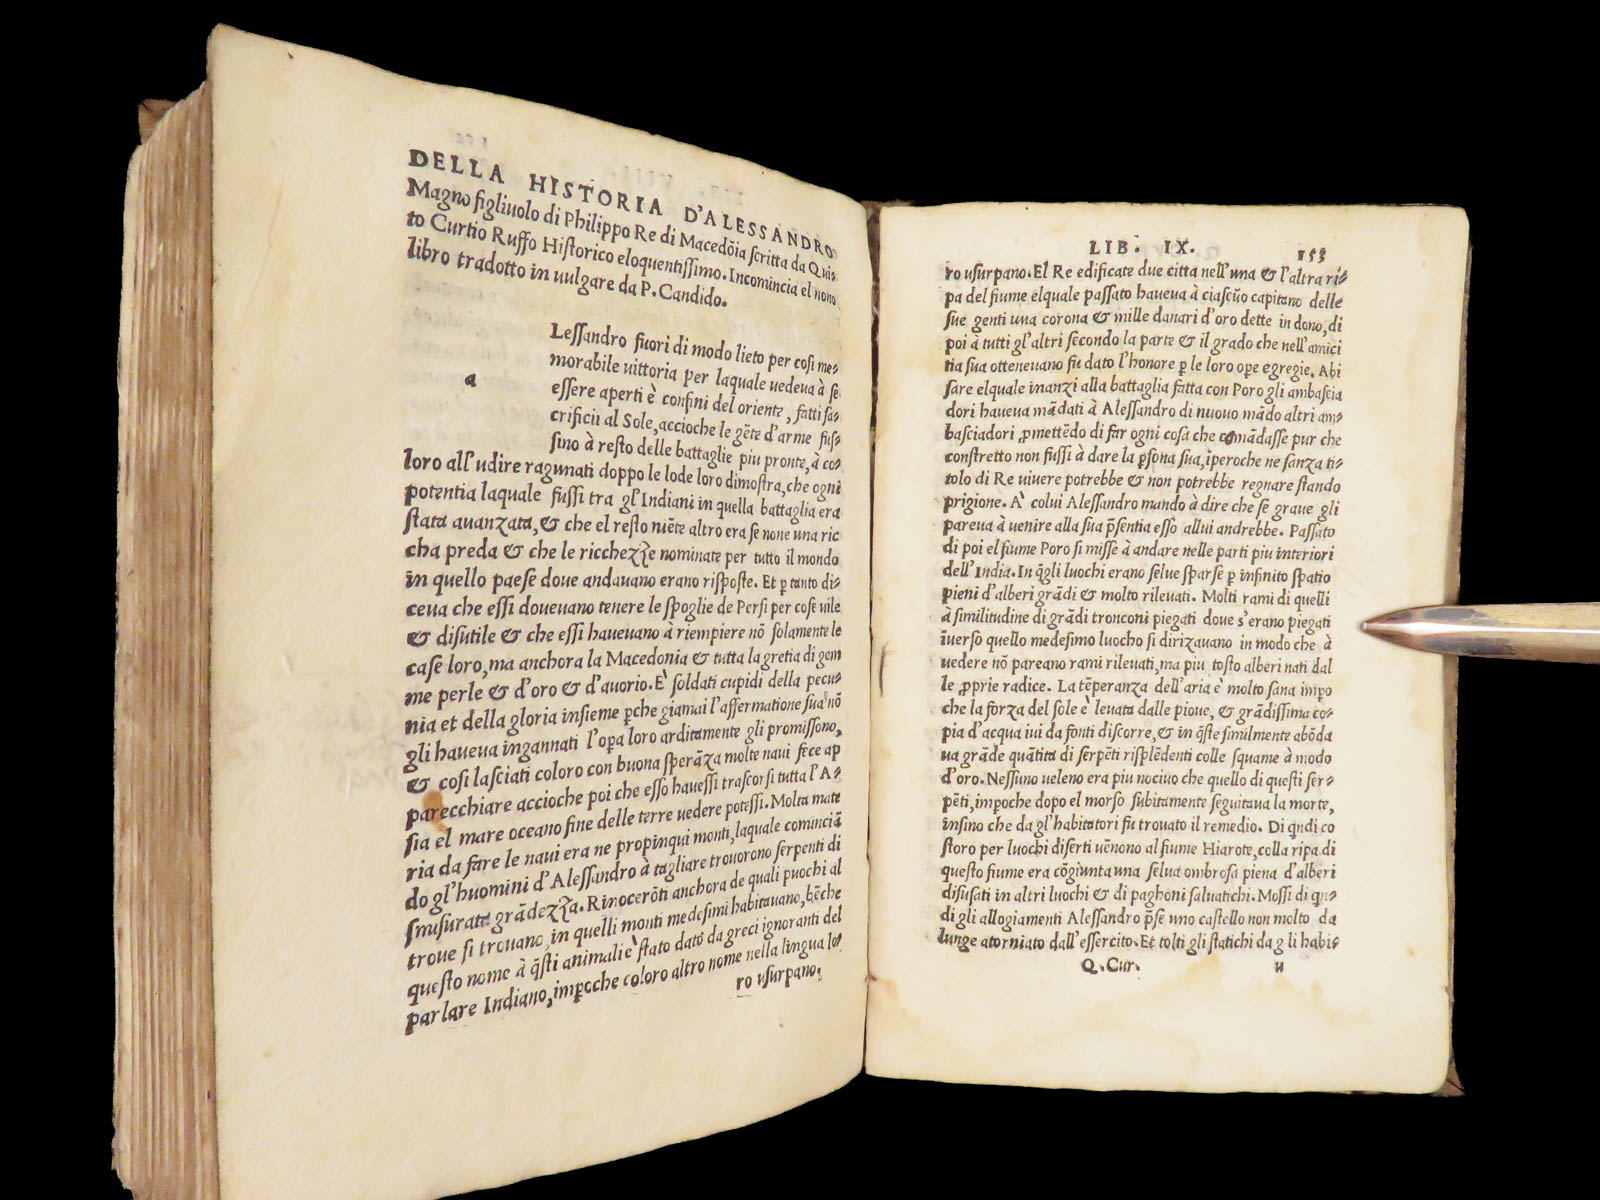 DELLA HISTORIA D'ALESSANDRO
Magno figliuolo di Philippo Re di Macedõia scritta da Quin-
to Curtio Ruffo Historico eloquentissimo. Incomincia el nono
libro tradotto in uulgare da P. Candido.
a
Lessandro fuori di modo lieto per cosi me-
morabile uittoria per laquale uedeua à se
essere aperti è confini del oriente, fatti sa-
crificii al Sole, accioche le gẽte d'arme fus-
sino à resto delle battaglie piu pronte, à co-
loro all'udire ragunati doppo le lode loro dimostra, che ogni
potentia laquale fussi tra gl'Indiani in quella battaglia era
stata auanzata, & che el resto niẽte altro era se none una ric
cha preda & che le ricchezze nominate per tutto il mondo
in quello paese doue andauano erano risposte. Et ꝑ tanto di-
ceua che essi doueuano tenere le spoglie de Persi per cose uile
& disutile & che essi haueuano à riempiere nõ solamente le
case loro, ma anchora la Macedonia & tutta la gretia di gem
me perle & d'oro & d'auorio. E' soldati cupidi della pecu-
nia et della gloria insieme ꝑche giamai l'affermatione sua nõ
gli haueua ingannati l'oꝑa loro arditamente gli promissono,
& cosi lasciati coloro con buona sperãza molte naui fece ap
parecchiare accioche poi che esso hauessi trascorsi tutta l'A-
sia el mare oceano fine delle terre uedere potessi. Molta mate
ria da fare le naui era ne propinqui monti, laquale cominciã
do gl'huomini d'Alessandro à tagliare trouorono serpenti di
smisurata grãdezza. Rinocerõti anchora de quali puochi al
troue si trouano, in quelli monti medesimi habitauano, bẽche
questo nome à q̃sti animali è stato dato da greci ignoranti del
parlare Indiano, imꝑoche coloro altro nome nella lingua lo-
ro usurpano,
LIB. IX. 153
ro usurpano. El Re edificate due citta nell'una & l'altra ri-
pa del fiume elquale passato haueua à ciascũo capitano delle
sue genti una corona & mille danari d'oro dette in dono, di
poi à tutti gl'altri secondo la parte & il grado che nell'amici
tia sua otteneuano fu dato l'honore ꝑ le loro oꝑe egregie. Abi
sare elquale inanzi alla battaglia fatta con Poro gli ambascia
dori haueua mãdati à Alessandro di nuouo mãdo altri am-
basciadori ꝓmettẽdo di far ogni cosa che comãdasse pur che
constretto non fussi à dare la ꝑsona sua, ĩperoche ne sanza ti-
tolo di Re uiuere potrebbe & non potrebbe regnare stando
prigione. A' colui Alessandro mando à dire che se graue gli
pareua à uenire alla sua p̃sentia esso allui andrebbe. Passato
di poi el fiume Poro si misse à andare nelle parti piu interiori
dell'India. In q̃gli luochi erano selue sparse ꝑ infinito spatio
pieni d'alberi grãdi & molto rileuati. Molti rami di quelli
à similitudine di grãdi tronconi piegati doue s'erano piegati
ĩuerso quello medesimo luocho si dirizauano in modo che à
uedere nõ pareano rami rileuati, ma piu tosto alberi nati dal
le ꝓprie radice. La tẽperanza dell'aria è molto sana impo
che la forza del sole è leuata dalle pioue, & grãdissima co-
pia d'acqua iui da fonti discorre, & in q̃ste similmente abõda
ua grãde quãtita di serpẽti risplẽdenti colle squame à modo
d'oro. Nessuno ueleno era piu nociuo che quello di questi ser-
pẽti, impoche dopo el morso subitamente seguitaua la morte,
insino che da gl'habitatori fu trouato il remedio. Di q̃ndi co
storo per luochi diserti uẽnono al fiume Hiarote, colla ripa di
questo fiume era cõgiunta una selua ombrosa piena d'alberi
disusati in altri luochi & di paghoni saluatichi. Mossi di q̃n-
di gli allogiamenti Alessandro p̃se uno castello non molto da
lunge atorniato dall'essercito. Et tolti gli statichi da gli habi-
Q. Cur. u